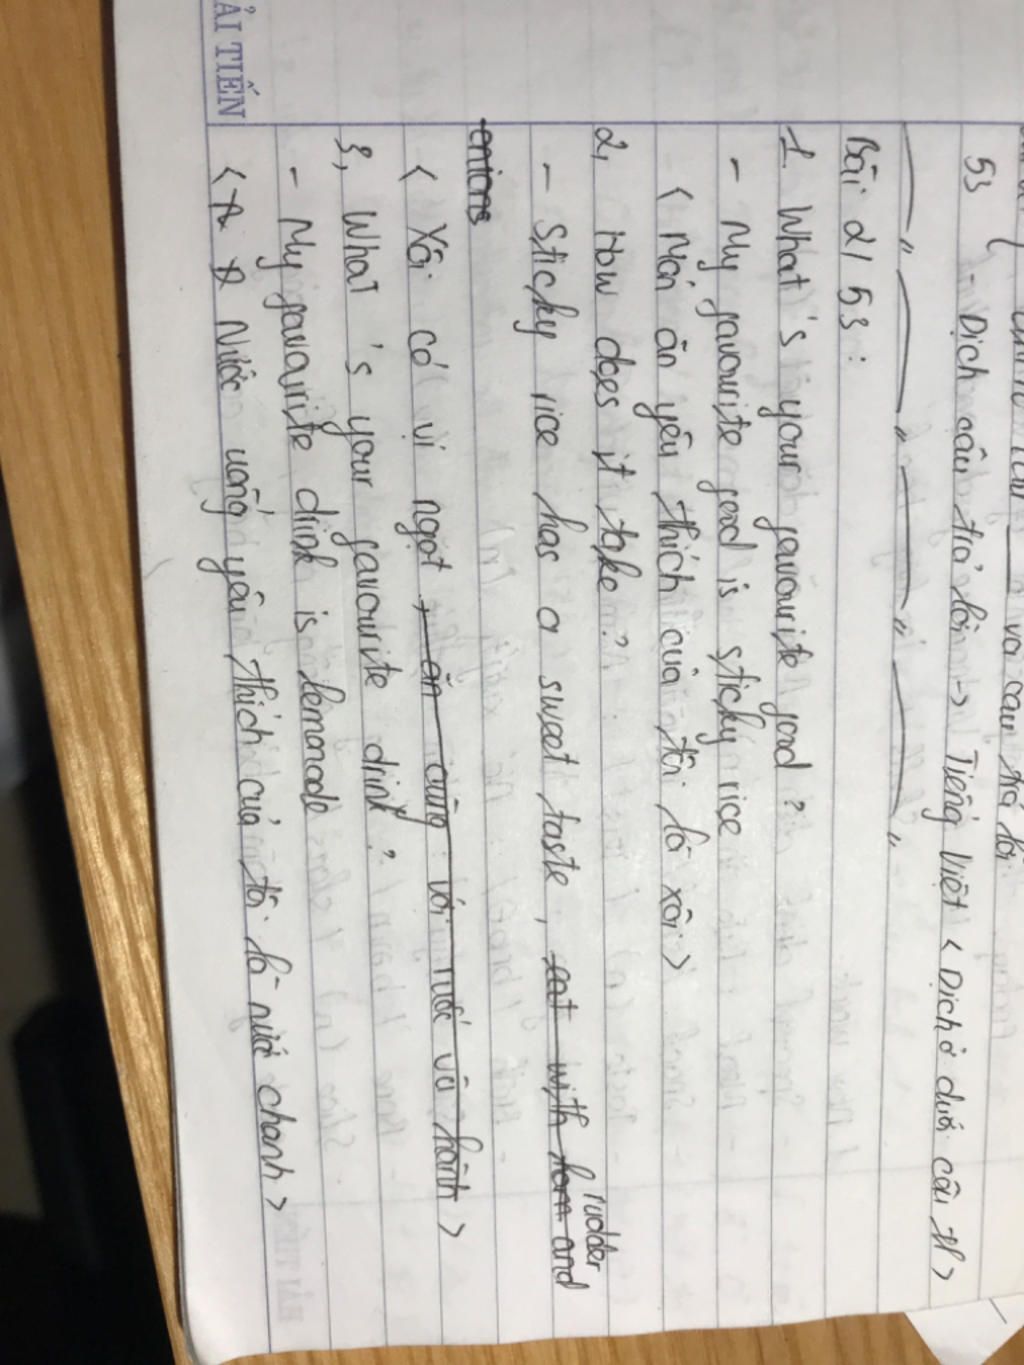 và câu trả lời
53 - Dịch câu trả lời -> Tiếng Việt < Dịch ở dưới câu
Bài 2/ 53 :
1. What's your favourite food ?
- My favourite food is sticky rice
< Món ăn yêu thích của tôi là xôi >
2, How does it take ?
- Sticky rice has a sweet taste, eat with ham and rudder
onions
< Xôi có vị ngọt, ăn cùng với ruốc và hành >
3, What's your favourite drink ?
- My favourite drink is lemonade
< Nước uống yêu thích của tôi là nước chanh >
ẢI TIẾN